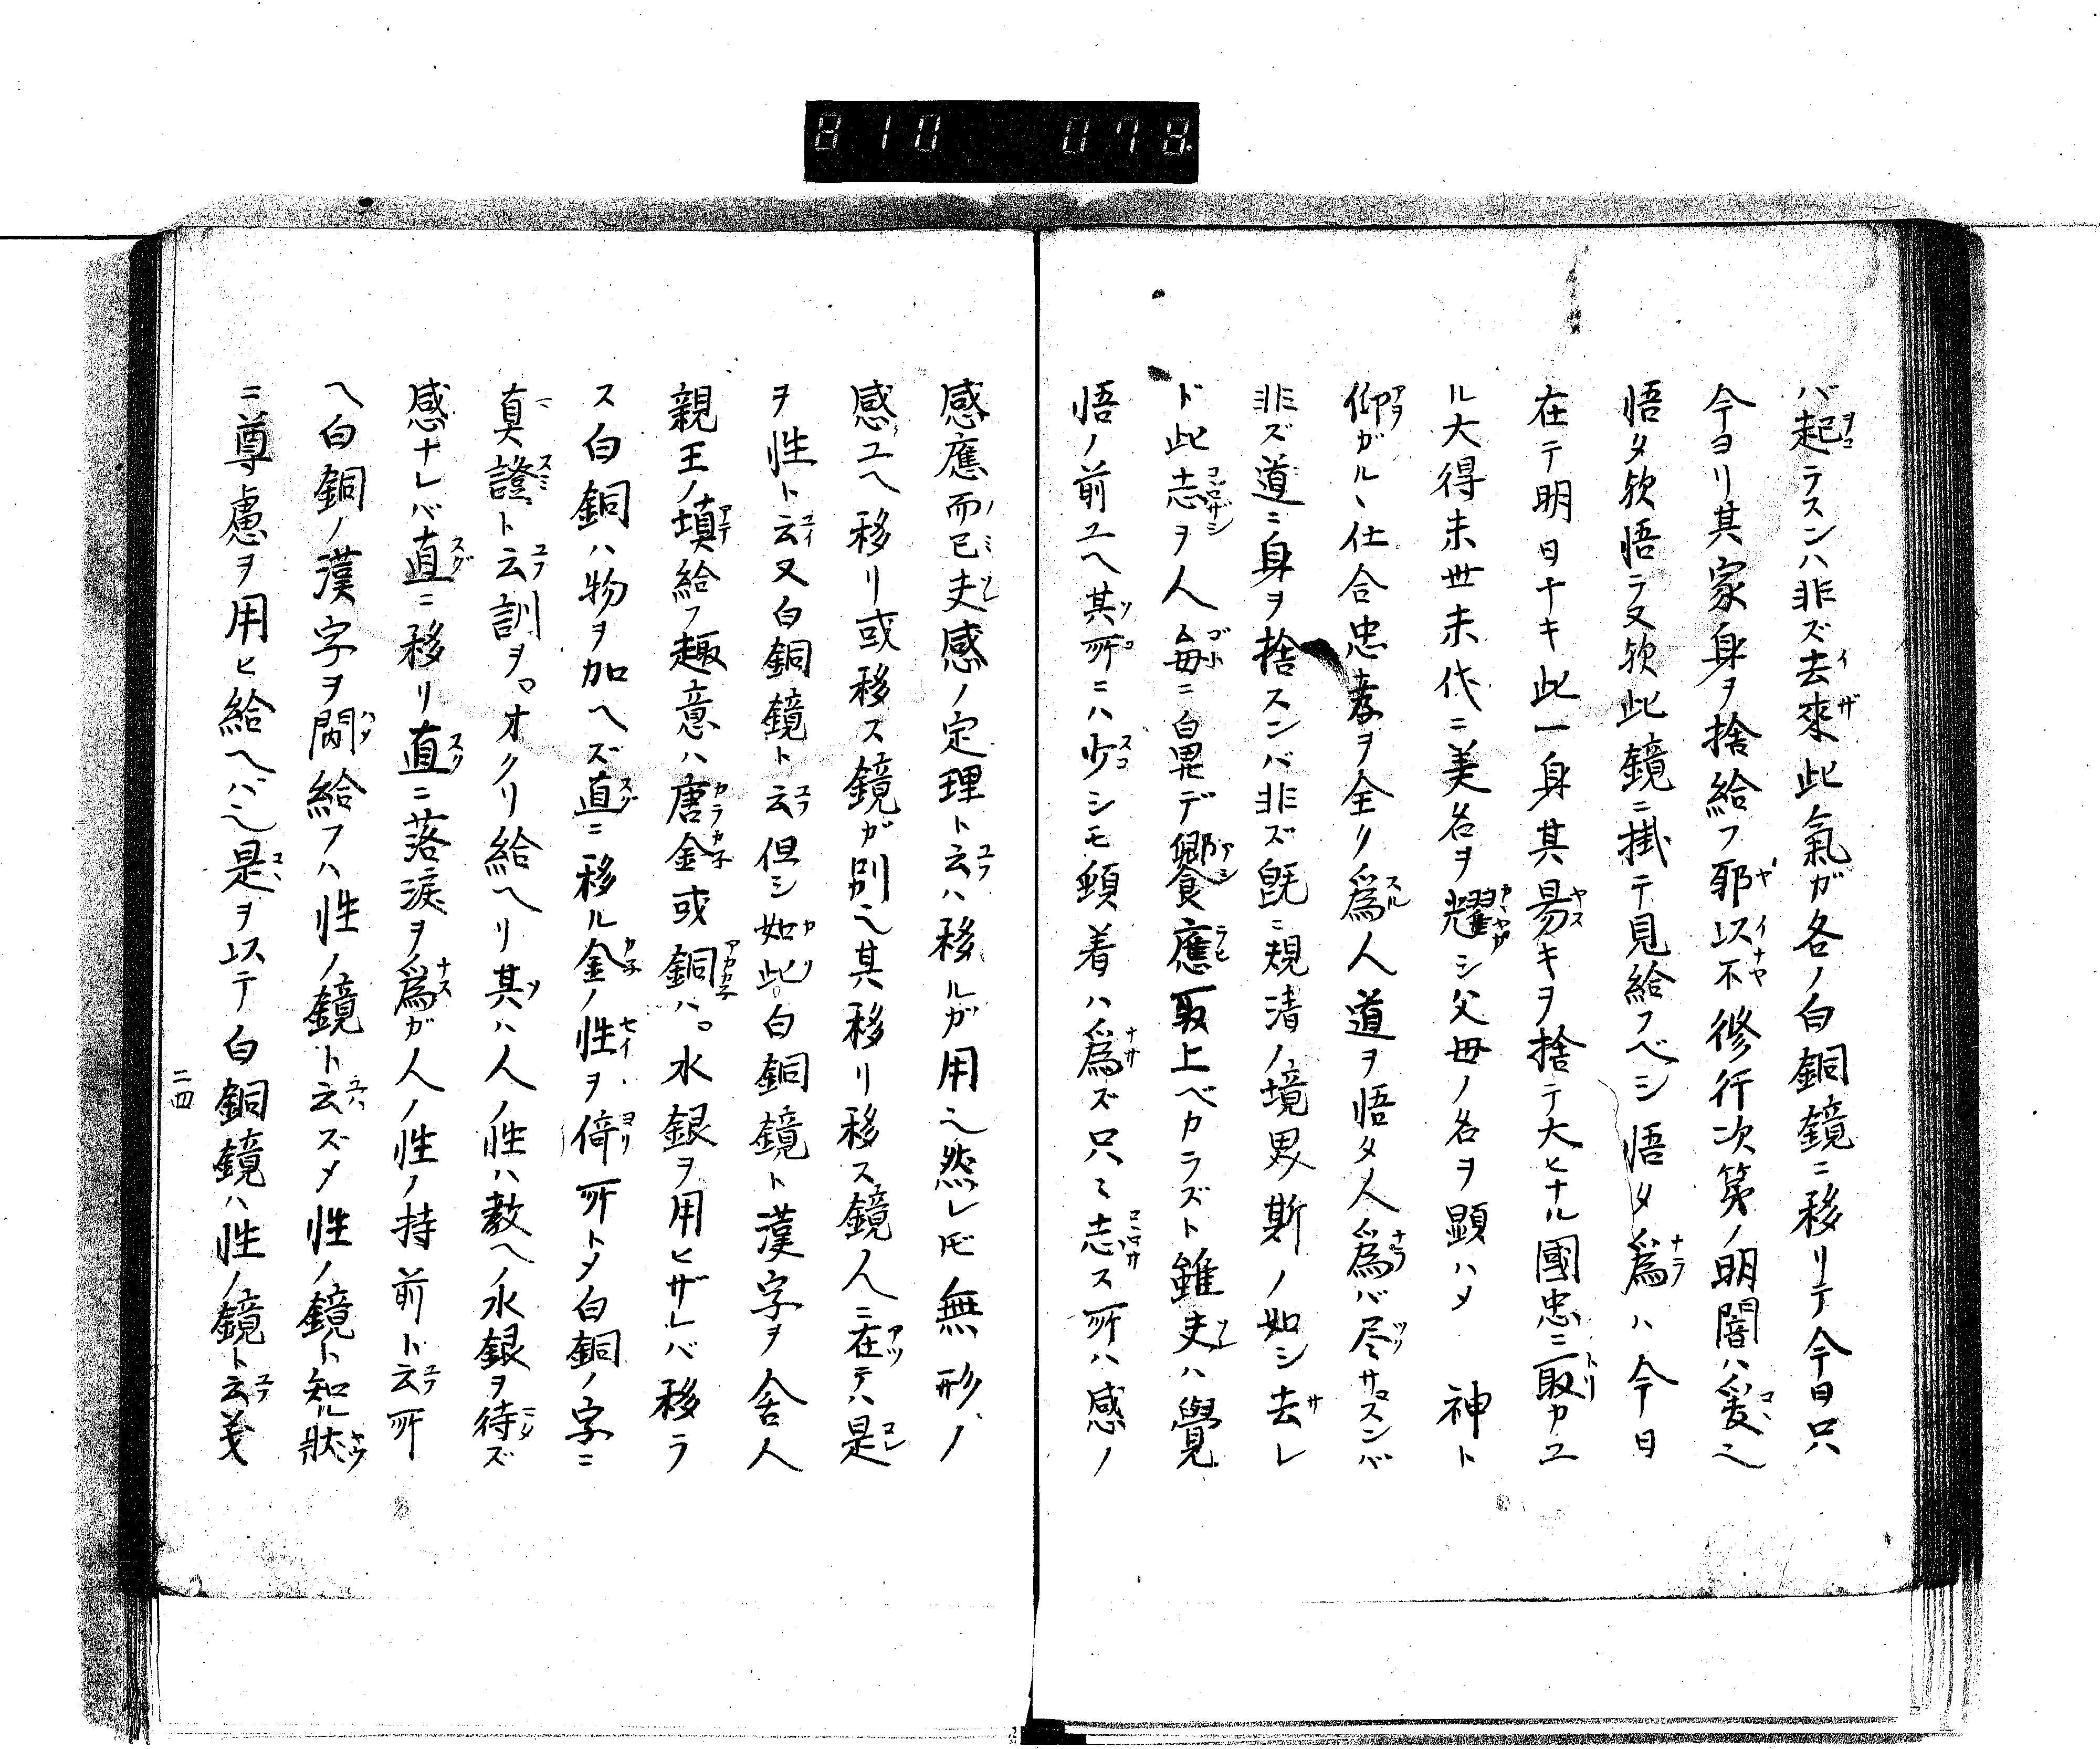 810 078
バ起テスンハ非ズ去來此氣ガ各ノ白銅鏡ニ移リテ今日只
今ヨリ其家身ヲ捨給フ耶以不修行次第ノ明闇ハ爰ヘ
悟タ欤悟ラヌ欤此鏡ニ掛テ見給フベシ悟タ爲ハ今日
在テ明日ナキ此一身其易キヲ捨テ大ヒナル國忠ニ取カユ
ル大得末世末代ニ美名ヲ耀シ父母ノ名ヲ顕ハメ 神ト
仰ガルヽ仕合忠孝ヲ全ク爲人道ヲ悟タ人爲バ尽サスンバ
非ズ道ニ身ヲ捨スンバ非ズ既ニ規清ノ境界斯ノ如シ去レ
ド此志ヲ人毎ニ白畢デ饗應取上ベカラズト雖夫ハ覺
悟ノ前ユヘ其所ニハ少シモ頓着ハ爲ズ只ミ志ス所ハ感ノ
感應而已夫感ノ定理ト云ハ移ルガ用ヘ然レ𪜈無形ノ
感ユヘ移リ或移ス鏡ガ別ヘ其移リ移ス鏡人ニ在テハ是
ヲ性ト云又白銅鏡ト云但シ如此白銅鏡ト漢字ヲ舎人
親王ノ填給フ趣意ハ唐金或銅ハ。水銀ヲ用ヒザレバ移ラ
ス白銅ハ物ヲ加ヘズ直ニ移ル金ノ性ヲ倚所トメ白銅ノ字ニ
真證ト云訓ヲ。オクリ給ヘリ其ハ人ノ性ハ教ヘノ水銀ヲ待ズ
感ナレバ直ニ移リ直ニ落涙ヲ爲ガ人ノ性ノ持前ト云所
ヘ白銅ノ漢字ヲ閊給フハ性ノ鏡ト云ズメ性ノ鏡ト知ル狀
ニ尊慮ヲ用ヒ給ヘバヘ是ヲ以テ白銅鏡ハ性ノ鏡ト云義
二四